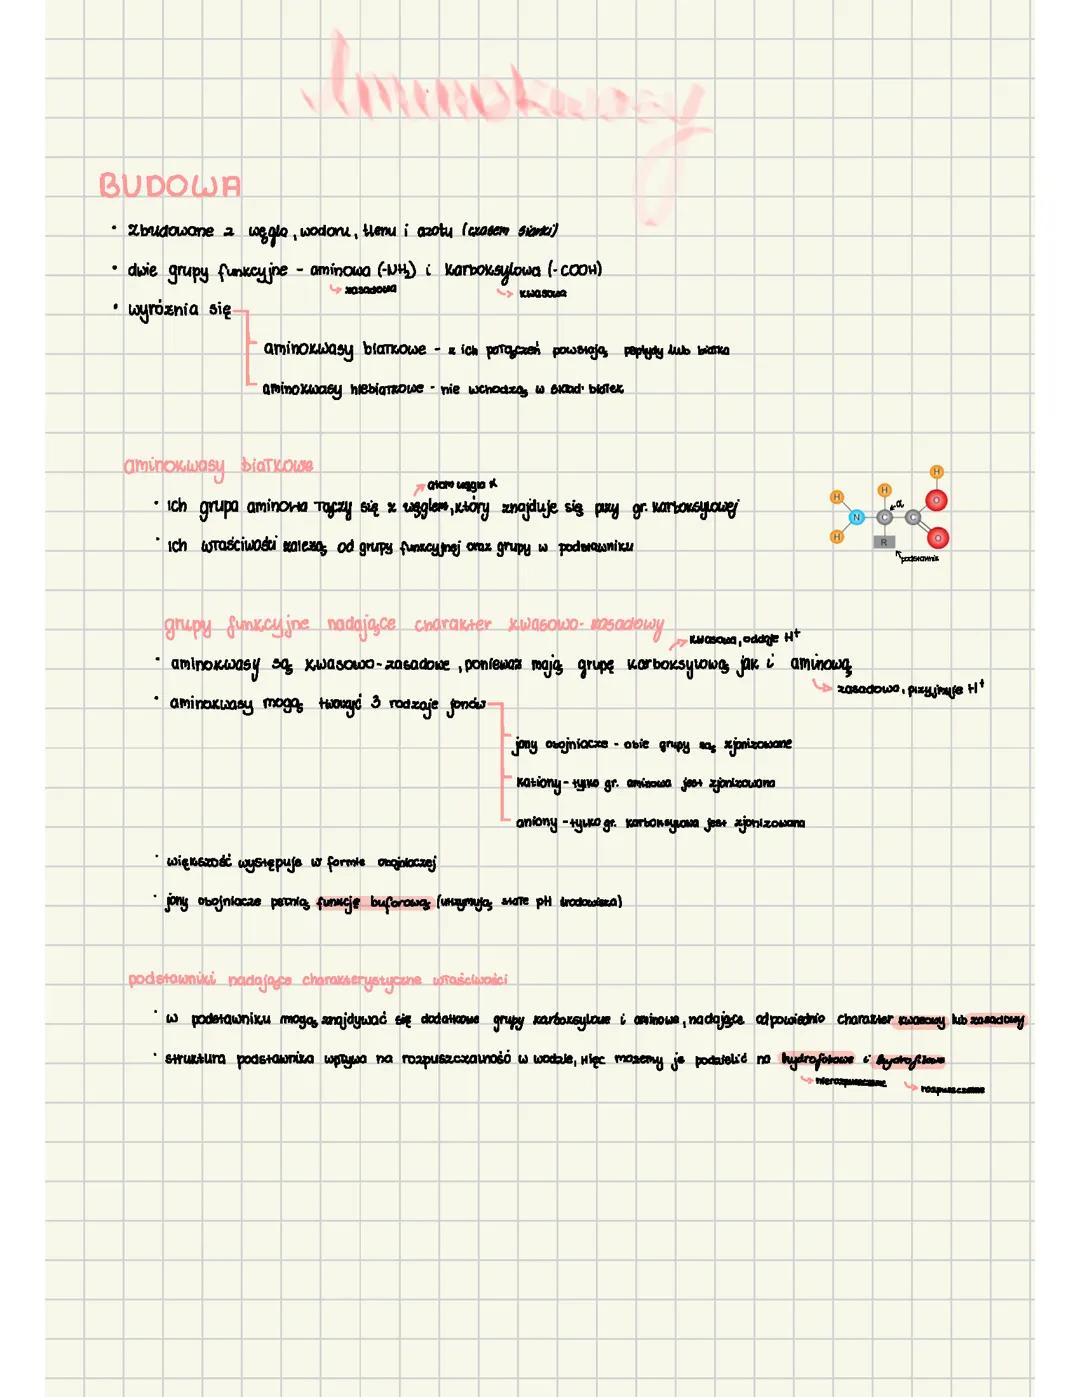 Aminokwasy
BUDOWA
• zbudowane z węgla, wodoru, tlenu i azotu (czasem siarki)
• dwie grupy funkcyjne - aminowa (-NH₂) i karboksylowa (-COOH)
zasadowa
kwasowa
• wyróżnia się
aminokwasy białkowe - z ich połączeń powstają peptydy lub białka
aminokwasy niebiałkowe - nie wchodzą w skład białek
aminokwasy białkowe
atom węgla α
• ich grupa aminowa łączy się z węglem, który znajduje się przy gr. karboksylowej
• ich właściwości zależą od grupy funkcyjnej oraz grupy w podstawniku
H
H
H
α
O
N
C
C
H
R
O
podstawnik
grupy funkcyjne nadające charakter kwasowo-zasadowy
kwasowa, oddaje H⁺
• aminokwasy są kwasowo-zasadowe, ponieważ mają grupę karboksylową jak i aminową
zasadowa, przyjmuje H⁺
• aminokwasy mogą tworzyć 3 rodzaje jonów
jony obojniacze - obie grupy są zjonizowane
kationy - tylko gr. aminowa jest zjonizowana
aniony - tylko gr. karboksylowa jest zjonizowana
• większość występuje w formie obojniaczej
• jony obojniacze pełnią funkcję buforową (utrzymują stałe pH środowiska)
podstawniki nadające charakterystyczne właściwości
• w podstawniku mogą znajdywać się dodatkowe grupy karboksylowe i aminowe, nadające odpowiednio charakter kwasowy lub zasadowy
• struktura podstawnika wpływa na rozpuszczalność w wodzie, więc możemy je podzielić na hydrofobowe i hydrofilowe
nierozpuszczalne
rozpuszczalne